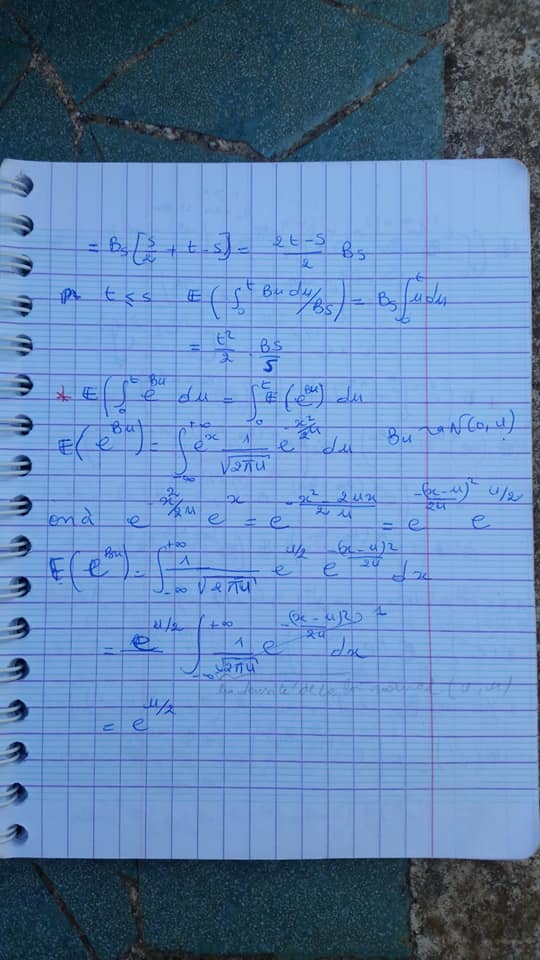 = Bs [s/2 + t - s] = (2t-s)/2 Bs
t ≤ s E(∫₀ᵗ Bu du/Bs) = Bs ∫₀ᵗ u du
= t²/2 . Bs/s
* E(∫₀ᵗ e^Bu du = ∫₀ᵗ E(e^Bu) du
E(e^Bu) = ∫_{-∞}^{+∞} e^x 1/√(2πu) e^{-x²/2u} du Bu ~ N(0, u)
on a e^{-x²/2u} e^x = e^{-(x² - 2ux)/2u} = e^{-(x-u)²/2u} e^{u/2}
E(e^Bu) = ∫_{-∞}^{+∞} 1/√(2πu) e^{u/2} e^{-(x-u)²/2u} dx
= e^{u/2} ∫_{-∞}^{+∞} 1/√(2πu) e^{-(x-u)²/2u} dx
= e^{u/2}